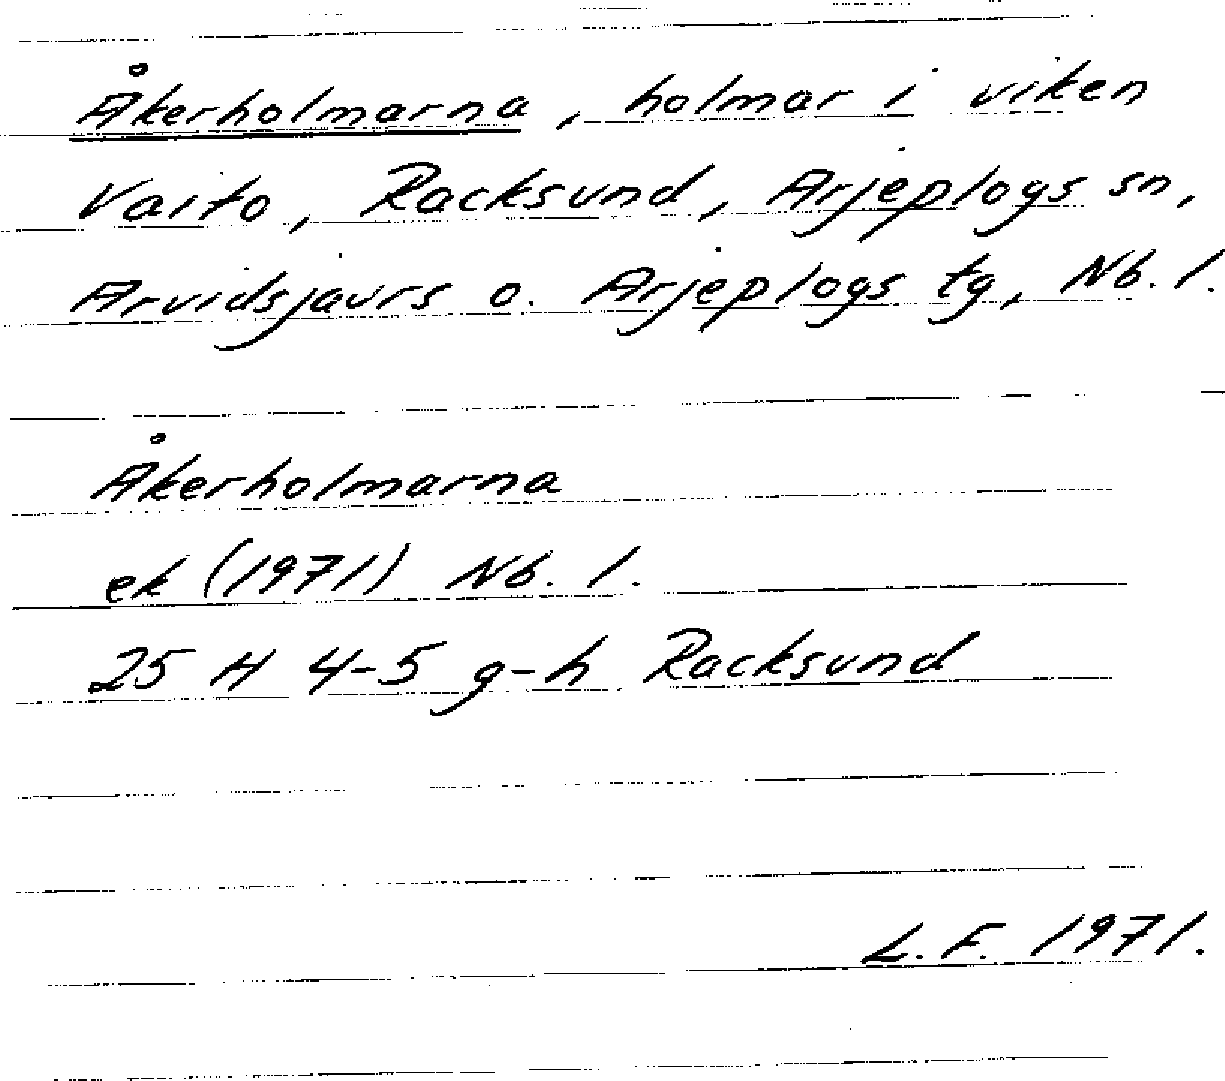 Åkerholmarna, holmar i viken
Vaito, Racksund, Arjeplogs sn,
Arvidsjaurs o. Arjeplogs tg, Nb. l.
Åkerholmarna
ek (1971) Nb. l.
25 H 4-5 g-h Racksund
L. F. 1971.